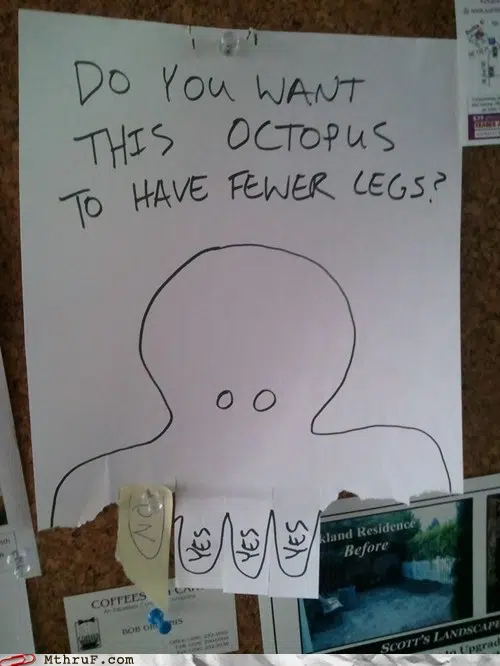 DO YOU WANT
THIS OCTOPUS
TO HAVE FEWER LEGS?
NO
YES
YES
YES
COFFEES
BOB
land Residence
Before
SCOTT'S LANDSCAP
MThruF.com